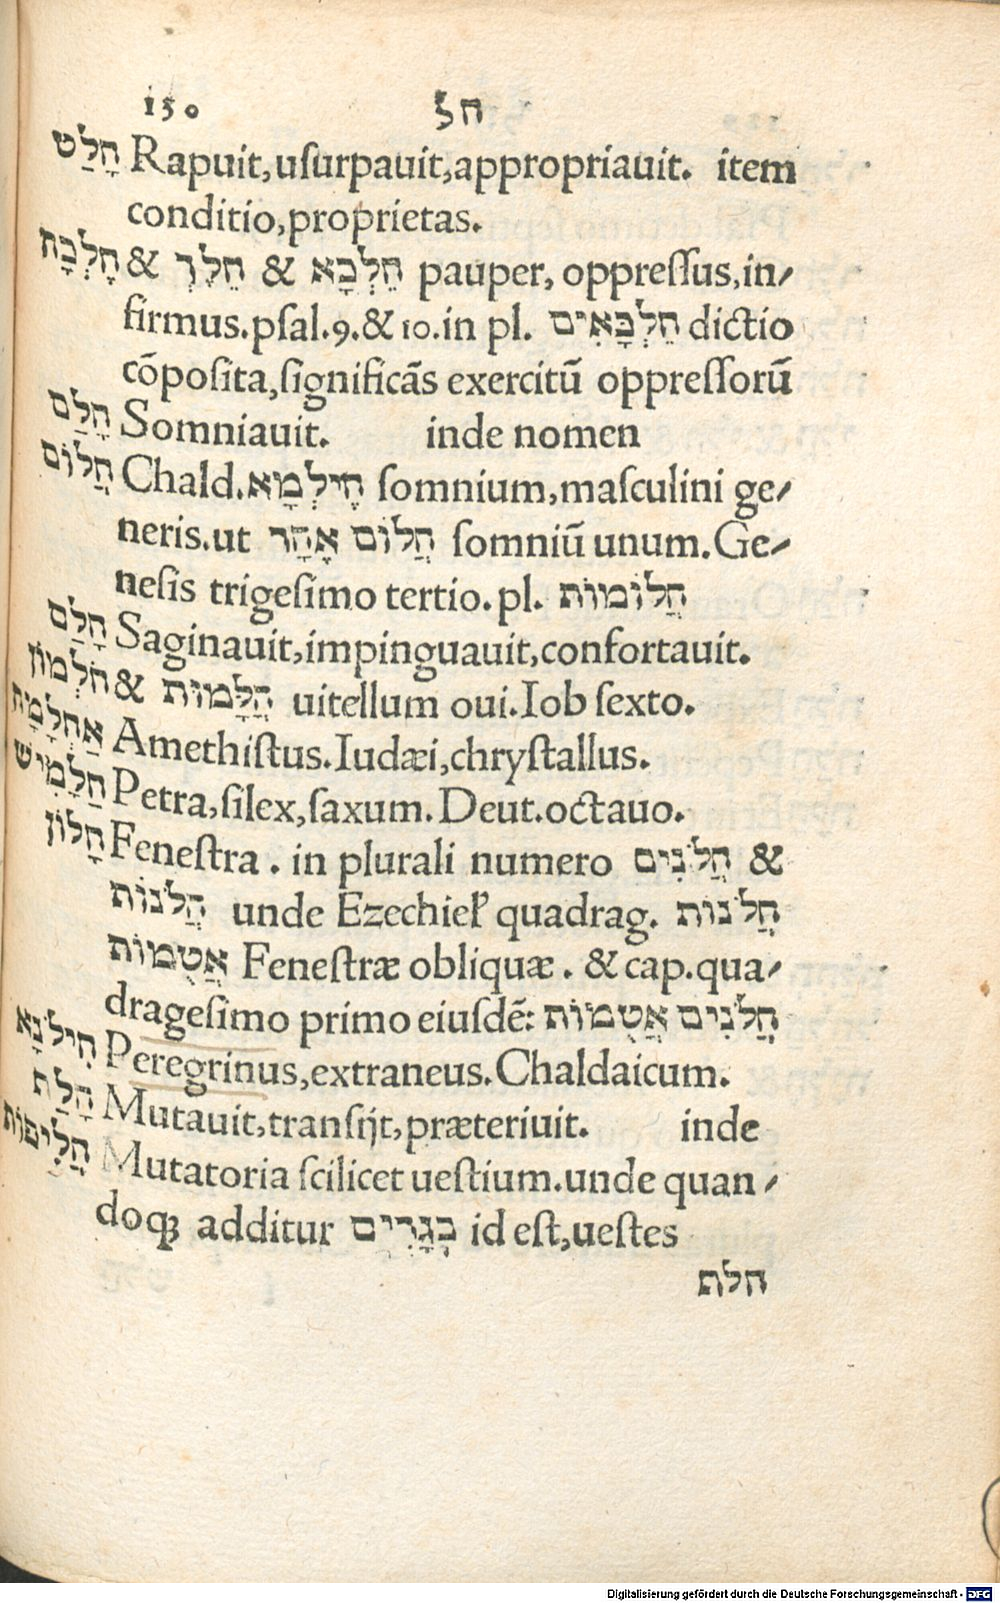 150 חל
חָלַט Rapuit,uſurpauit,appropriauit. item
conditio,proprietas.
חָלְכָת & חֵלֶךְ & חֵלְכָא pauper, oppreſſus,in⸗
firmus.pſal.9.&10.in pl. חֵלְכָּאִים dictio
cōpoſita,ſignificās exercitū oppreſſorū
חָלַם Somniauit. inde nomen
חֲלוֹם Chald.חֶילְמָא ſomnium,maſculini ge⸗
neris.ut חֲלוֹם אֶחָר ſomniū unum.Ge⸗
neſis trigeſimo tertio.pl. חֲלוֹמוֹת
חָלַם Saginauit,impinguauit,confortauit.
חֹלְמוֹן & חֲלָּמוּת uitellum oui.Iob ſexto.
אַחְלָמָה Amethiſtus.Iudæi,chryſtallus.
חַלָּמִישׁ Petra,ſilex,ſaxum.Deut.octauo.
חָלוֹן Feneſtra . in plurali numero חֲלֹנִים &
חֲלֹנוֹת unde Ezechieł quadrag. חֲלֹנוֹת
אֲטֻמוֹת Feneſtræ obliquæ . & cap.qua⸗
drageſimo primo eiuſdē: חֲלֹנִים אֲטֻמוֹת
חִילֹנָא Peregrinus,extraneus.Chaldaicum.
חָלַף Mutauit,tranſijt,præteriuit. inde
חֲלִיפוֹת Mutatoria ſcilicet ueſtium.unde quan⸗
doqꝫ additur בְּגָדִים id eſt,ueſtes
חלת
Digitalisierung gefördert durch die Deutsche Forschungsgemeinschaft - DFG